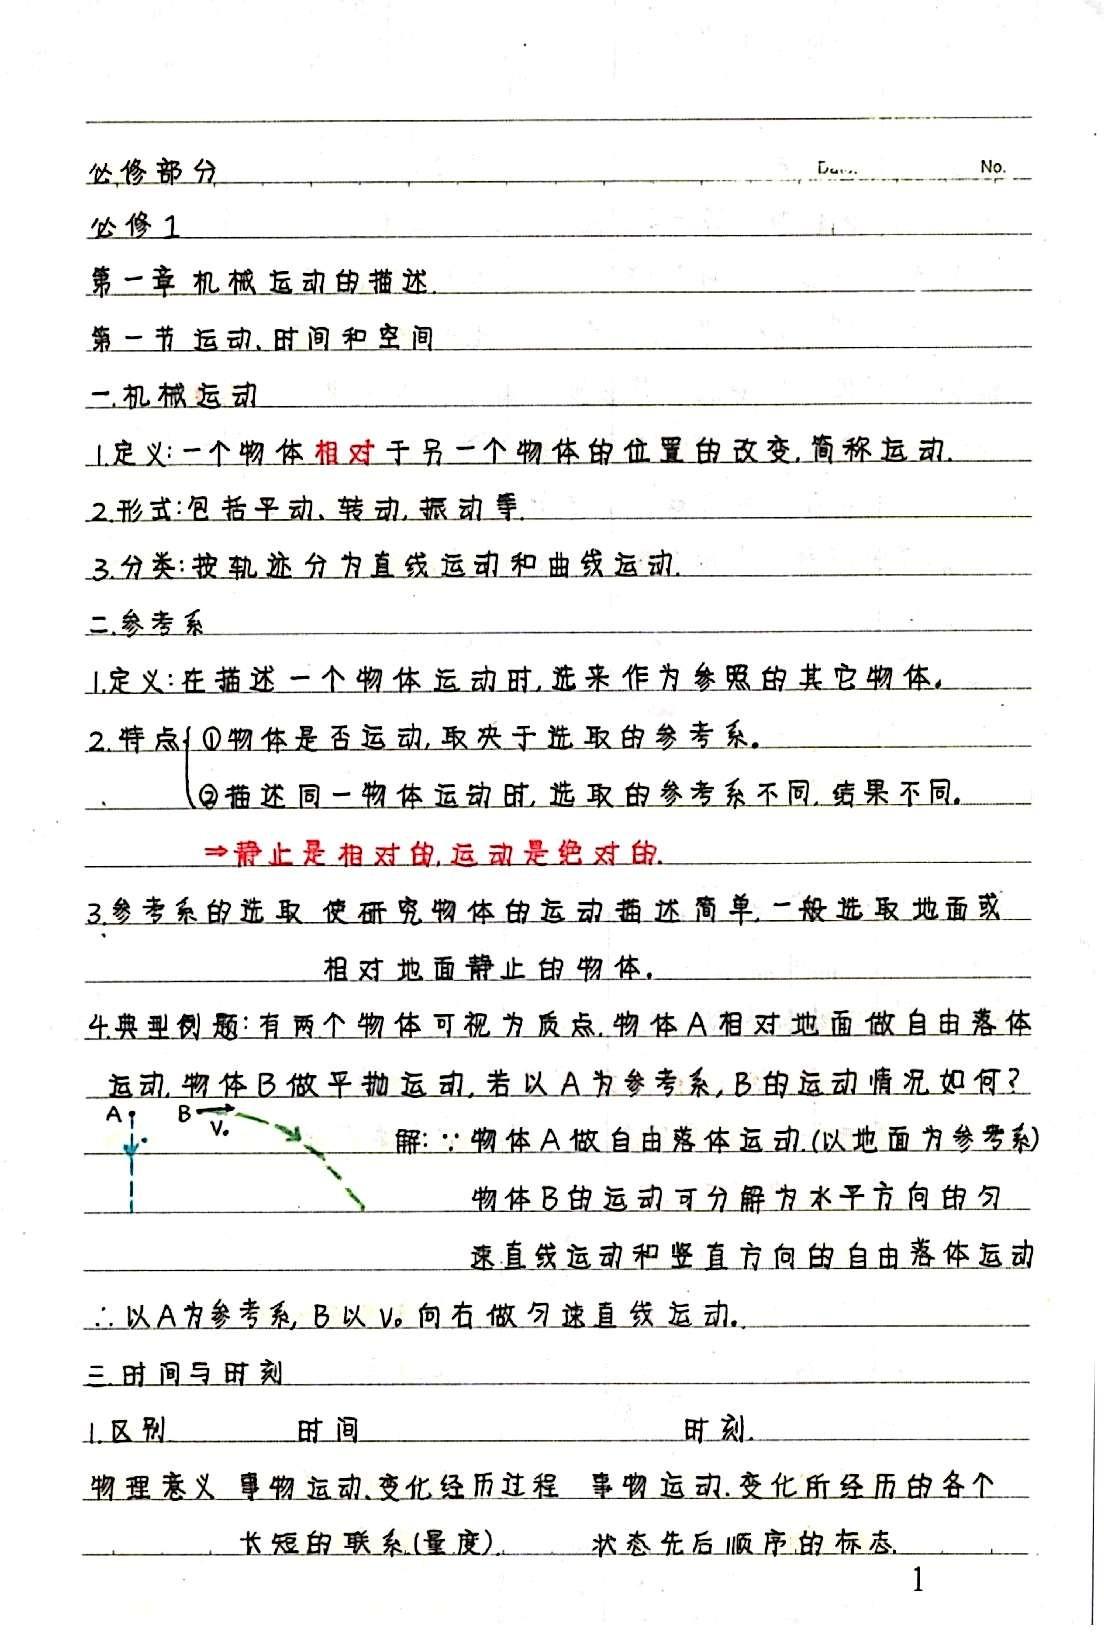 必修部分 No.
必修1
第一章 机械运动的描述.
第一节 运动、时间和空间
一.机械运动
1.定义:一个物体相对于另一个物体的位置的改变,简称运动.
2.形式:包括平动、转动,振动等.
3.分类:按轨迹分为直线运动和曲线运动.
二.参考系
1.定义:在描述一个物体运动时,选来作为参照的其它物体。
2.特点{①物体是否运动,取决于选取的参考系。
②描述同一物体运动时,选取的参考系不同,结果不同。
⇒静止是相对的,运动是绝对的.
3.参考系的选取 使研究物体的运动描述简单,一般选取地面或
相对地面静止的物体.
4.典型例题:有两个物体可视为质点.物体A相对地面做自由落体
运动,物体B做平抛运动,若以A为参考系,B的运动情况如何?
A B V₀
解:∵物体A做自由落体运动.(以地面为参考系)
物体B的运动可分解为水平方向的匀
速直线运动和竖直方向的自由落体运动
∴以A为参考系,B以V₀向右做匀速直线运动.
三.时间与时刻
1.区别 时间 时刻.
物理意义 事物运动、变化经历过程 事物运动.变化所经历的各个
长短的联系.(量度). 状态先后顺序的标志.
1